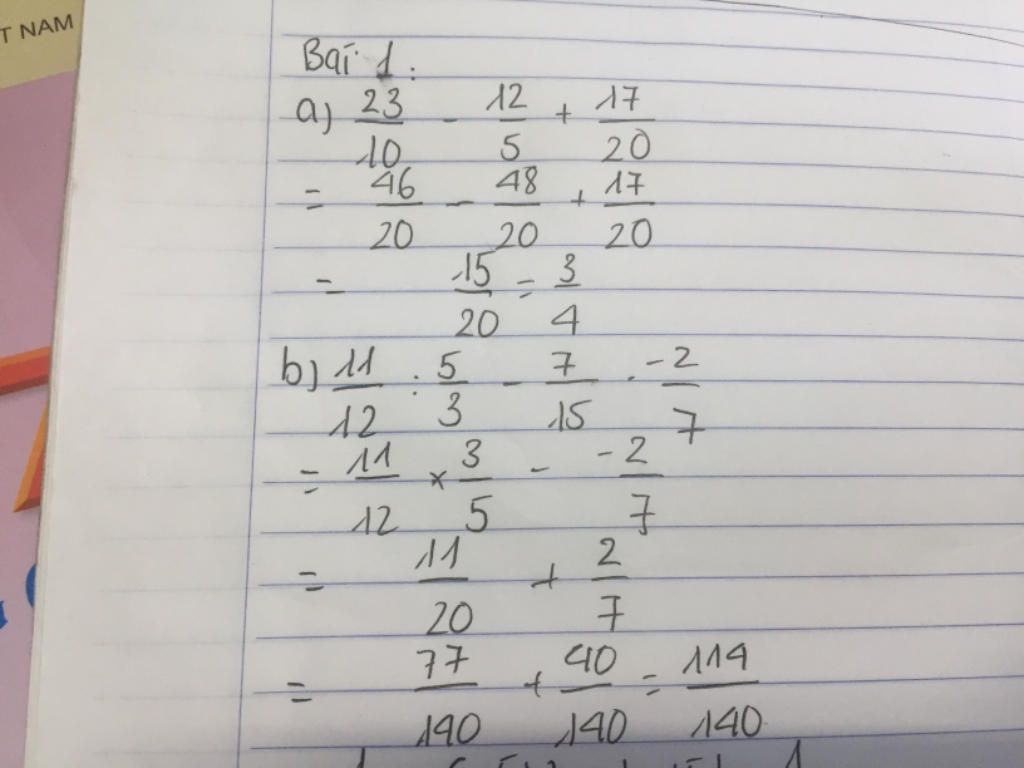 T NAM
Bài 1:
a) 23/10 - 12/5 + 17/20
= 46/20 - 48/20 + 17/20
= 15/20 = 3/4
b) 11/12 : 5/3 - 7/15 . -2/7
= 11/12 × 3/5 - -2/7
= 11/20 + 2/7
= 77/140 + 40/140 = 114/140